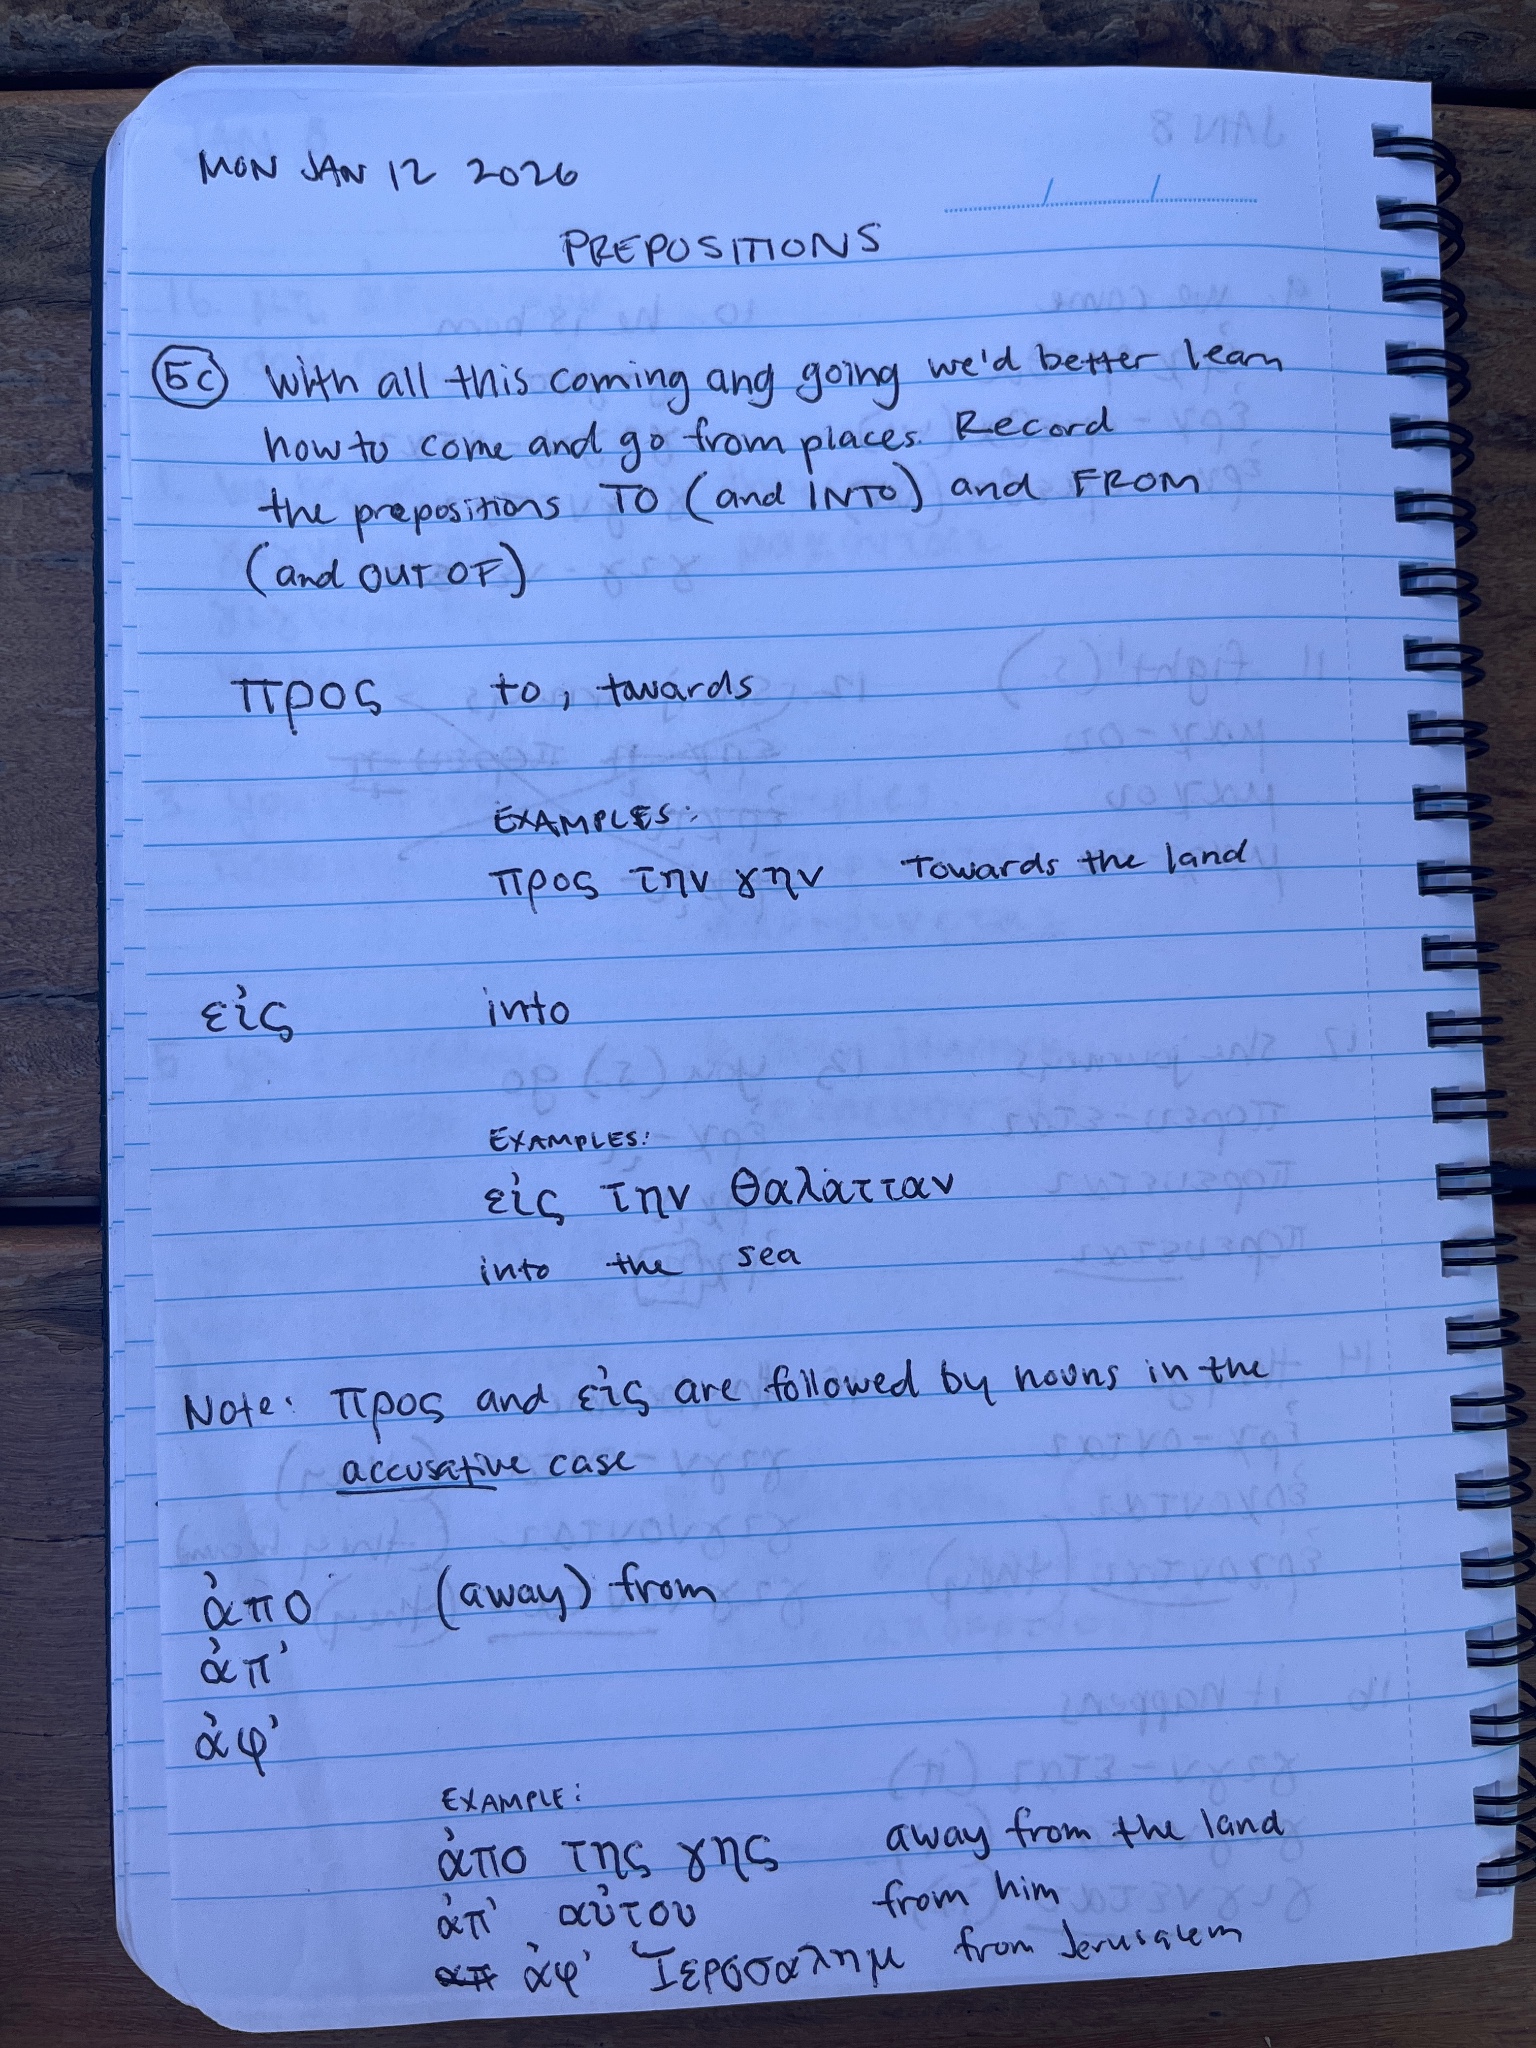 MON JAN 12 2026
PREPOSITIONS
5c With all this coming ang going we'd better learn
how to come and go from places. Record
the prepositions TO (and INTO) and FROM
(and OUT OF)
προς to, towards
EXAMPLES:
προς την γην Towards the land
εἰς into
EXAMPLES:
εἰς την θαλατταν
into the sea
Note: προς and εἰς are followed by nouns in the
accusative case
ἀπο (away) from
ἀπ'
ἀφ'
EXAMPLE:
ἀπο της γης away from the land
ἀπ' αὐτου from him
ἀφ' Ἱεροσαλημ from Jerusalem